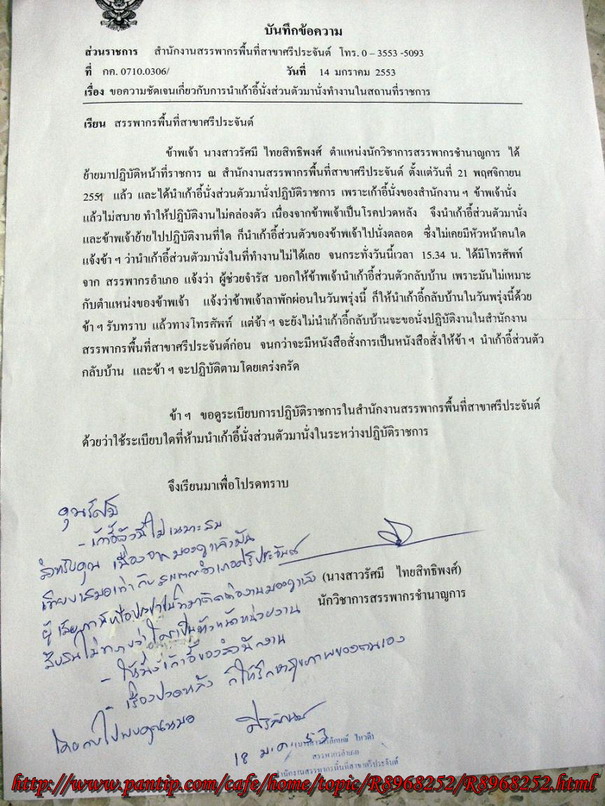 บันทึกข้อความ
ส่วนราชการ สำนักงานสรรพากรพื้นที่สาขาศรีประจันต์ โทร. 0 – 3553 -5093
ที่ กค. 0710.0306/ วันที่ 14 มกราคม 2553
เรื่อง ขอความชัดเจนเกี่ยวกับการนำเก้าอี้นั่งส่วนตัวมานั่งทำงานในสถานที่ราชการ
เรียน สรรพากรพื้นที่สาขาศรีประจันต์
ข้าพเจ้า นางสาวรัศมี ไทยสิทธิพงศ์ ตำแหน่งนักวิชาการสรรพากรชำนาญการ ได้
ย้ายมาปฏิบัติหน้าที่ราชการ ณ สำนักงานสรรพากรพื้นที่สาขาศรีประจันต์ ตั้งแต่วันที่ 21 พฤศจิกายน
2551 แล้ว และได้นำเก้าอี้นั่งส่วนตัวมานั่งปฏิบัติราชการ เพราะเก้าอี้นั่งของสำนักงาน ฯ ข้าพเจ้านั่ง
แล้วไม่สบาย ทำให้ปฏิบัติงานไม่คล่องตัว เนื่องจากข้าพเจ้าเป็นโรคปวดหลัง จึงนำเก้าอี้ส่วนตัวมานั่ง
และข้าพเจ้าย้ายไปปฏิบัติงานที่ใด ก็นำเก้าอี้นั่งส่วนตัวของข้าพเจ้าไปนั่งตลอด ซึ่งไม่เคยมีหัวหน้าคนใด
แจ้งข้า ฯ ว่านำเก้าอี้ส่วนตัวมานั่งในที่ทำงานไม่ได้เลย จนกระทั่งวันนี้เวลา 15.34 น. ได้มีโทรศัพท์
จาก สรรพากรอำเภอ แจ้งว่า ผู้ช่วยจำรัส บอกให้ข้าพเจ้านำเก้าอี้ส่วนตัวกลับบ้าน เพราะมันไม่เหมาะ
กับตำแหน่งของข้าพเจ้า แจ้งว่าข้าพเจ้าลาพักผ่อนในวันพรุ่งนี้ ก็ให้นำเก้าอี้กลับบ้านในวันพรุ่งนี้ด้วย
ข้า ฯ รับทราบ แล้วทางโทรศัพท์ แต่ข้า ฯ จะยังไม่นำเก้าอี้กลับบ้านจะขอนั่งปฏิบัติงานในสำนักงาน
สรรพากรพื้นที่สาขาศรีประจันต์ก่อน จนกว่าจะมีหนังสือสั่งการเป็นหนังสือสั่งให้ข้า ฯ นำเก้าอี้ส่วนตัว
กลับบ้าน และข้า ฯ จะปฏิบัติตามโดยเคร่งครัด
ข้า ฯ ขอดูระเบียบการปฏิบัติราชการในสำนักงานสรรพากรพื้นที่สาขาศรีประจันต์
ด้วยว่าใช้ระเบียบใดที่ห้ามนำเก้าอี้นั่งส่วนตัวมานั่งในระหว่างปฏิบัติราชการ
จึงเรียนมาเพื่อโปรดทราบ
(นางสาวรัศมี ไทยสิทธิพงศ์)
นักวิชาการสรรพากรชำนาญการ
คุณรัศมี
- เก้าอี้ตัวนี้ไม่เหมาะสม
สำหรับคุณ เนื่องจากมองดูแล้วมัน
เทียบเสมอเท่ากับสรรพากรอำเภอศรีประจันต์
ผู้เสียภาษีหรือประชาชนที่มาติดต่องานมองดูแล้ว
สับสนไม่ทราบว่าใครเป็นหัวหน้าหน่วยงาน
- ให้นั่งเก้าอี้ของสำนักงาน
เรื่องปวดหลัง ก็ให้รักษาสุขภาพของตนเอง
โดยไปพบคุณหมอ
18 ม.ค. 53
สรรพากรอำเภอ
สำนักงานสรรพากรพื้นที่สาขาศรีประจันต์
http://www.pantip.com/cafe/home/topic/R8968252/R8968252.html